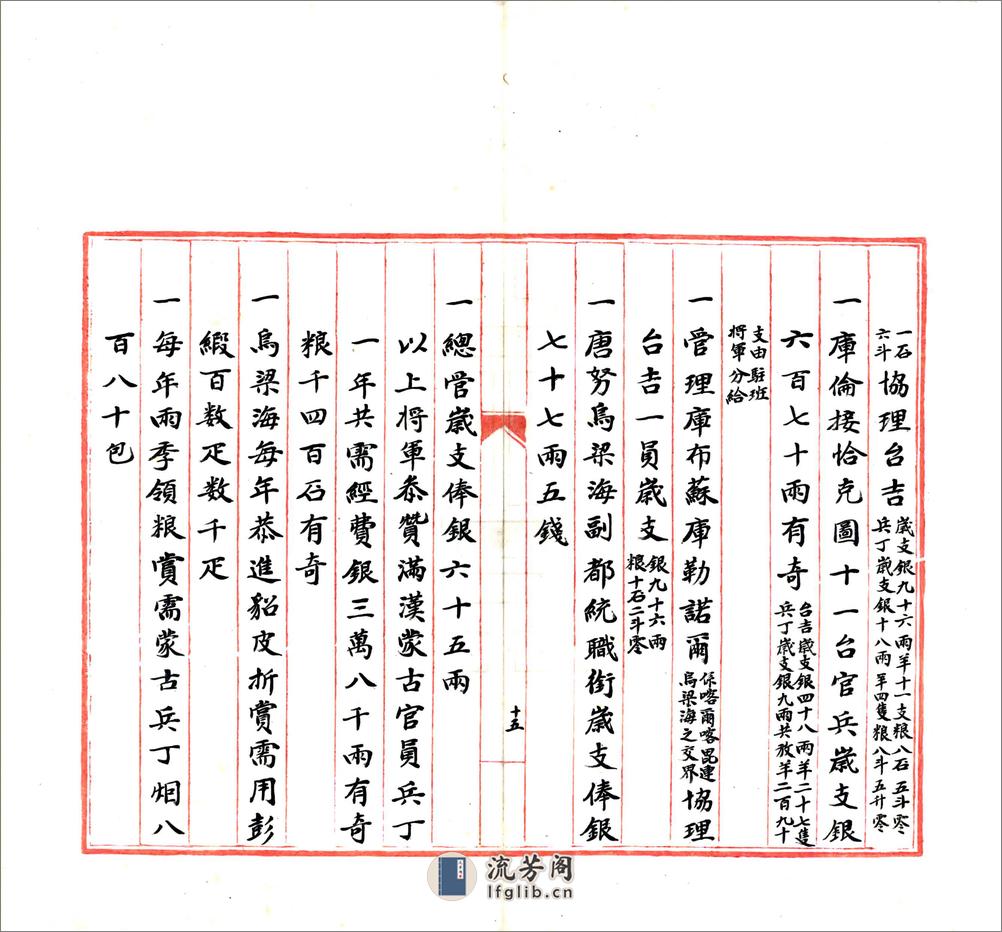 一石六斗協理台吉歲支銀九十六兩羊十一支粮八石五斗零兵丁歲支銀十八兩羊四隻粮八斗五升零
一庫倫接恰克圖十一台官兵歲支銀
六百七十兩有奇台吉歲支銀四十八兩羊二十七隻兵丁歲支銀九兩共放羊二百九十
支由駐班將軍分給
一管理庫布蘇庫勒諾爾係喀爾喀毘連烏梁海之交界協理
台吉一員歲支銀九十六兩粮十石二斗零
一唐努烏梁海副都統職銜歲支俸銀
七十七兩五錢
十五
一總管歲支俸銀六十五兩
以上將軍叅贊滿漢蒙古官員兵丁
一年共需經費銀三萬八千兩有奇
粮千四百石有奇
一烏梁海每年恭進貂皮折賞需用彭
緞百数疋数千疋
一每年兩季領粮賞需蒙古兵丁烟八
百八十包
流芳阁
lfglib.cn